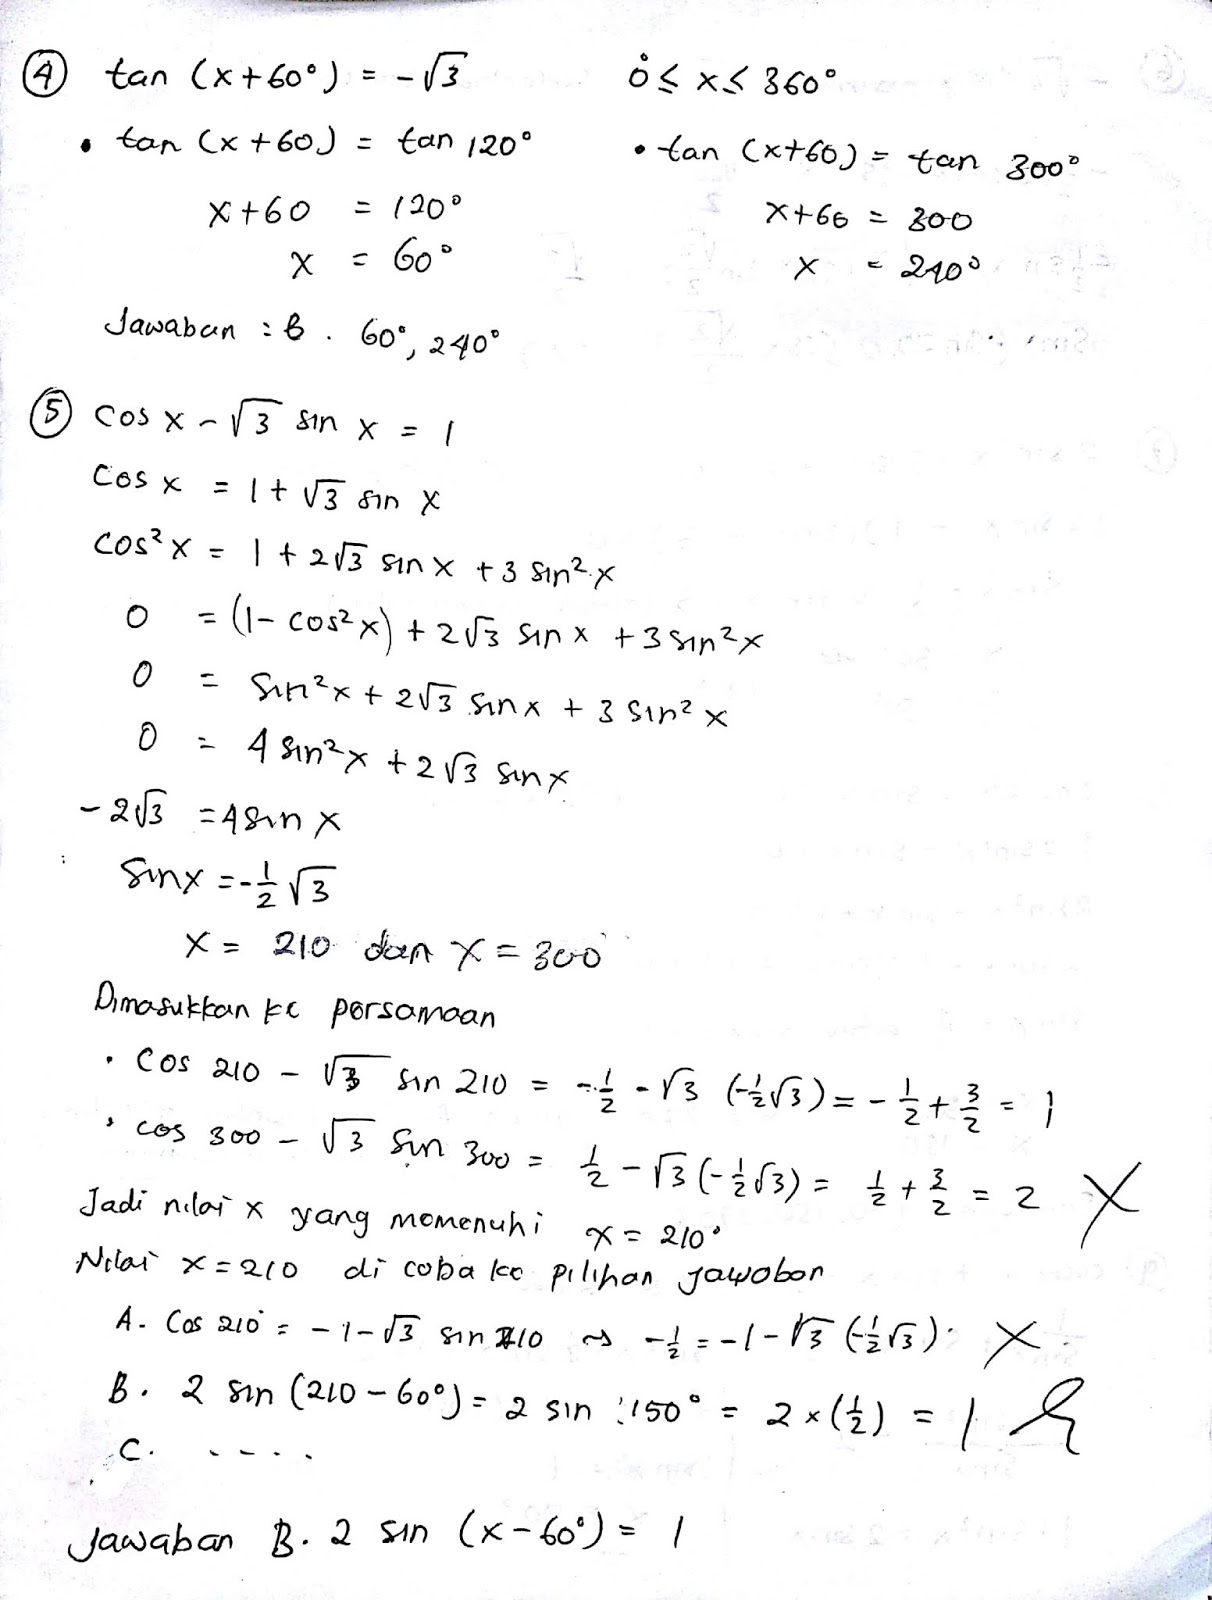 ④ tan (x+60°) = -√3 0° ≤ x ≤ 360°
• tan (x+60) = tan 120° • tan (x+60) = tan 300°
x+60 = 120° x+60 = 300
x = 60° x = 240°
Jawaban : B . 60°, 240°
⑤ cos x - √3 sin x = 1
cos x = 1 + √3 sin x
cos² x = 1 + 2√3 sin x + 3 sin² x
0 = (1 - cos² x) + 2√3 sin x + 3 sin² x
0 = sin² x + 2√3 sin x + 3 sin² x
0 = 4 sin² x + 2√3 sin x
-2√3 = 4 sin x
sin x = -1/2 √3
x = 210 dan x = 300
Dimasukkan ke persamaan
• cos 210 - √3 sin 210 = -1/2 - √3 (-1/2 √3) = -1/2 + 3/2 = 1
• cos 300 - √3 sin 300 = 1/2 - √3 (-1/2 √3) = 1/2 + 3/2 = 2 X
Jadi nilai x yang memenuhi x = 210°
Nilai x = 210 di coba ke pilihan jawaban
A. Cos 210° = -1 - √3 sin 210 ⇝ -1/2 = -1 - √3 (-1/2 √3) X
B. 2 sin (210 - 60°) = 2 sin 150° = 2 × (1/2) = 1
C. . . . . .
Jawaban B. 2 sin (x - 60°) = 1